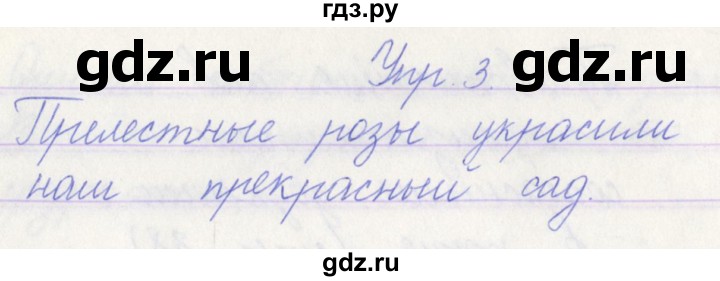 гдз.ру
gdz.ru gdz.ru
Упр. 3.
Прелестные розы украсили
наш прекрасный сад.
gdz.ru